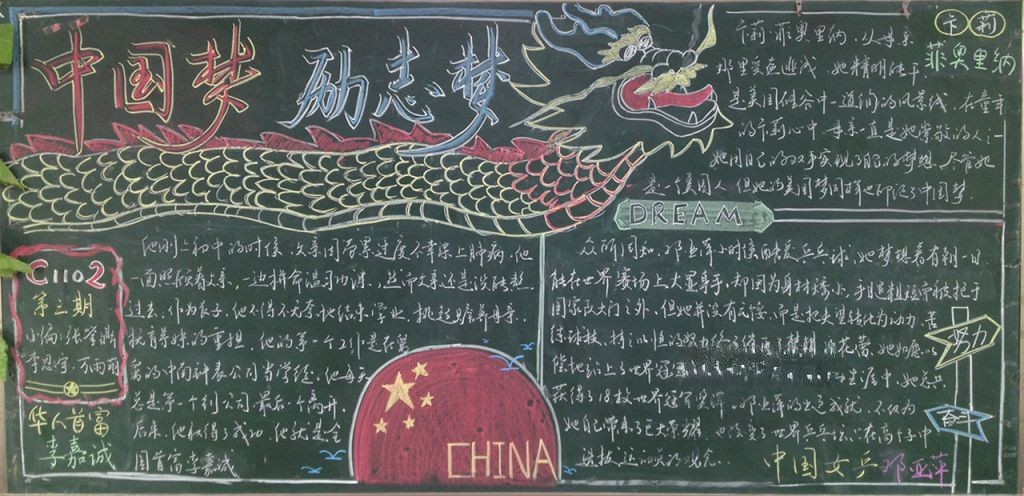 中国梦 励志梦
卡莉
菲奥里纳
卡莉·菲奥里纳,从母亲
那里受益匪浅 她精明能干
是美国硅谷中一道绚的风景线.在童年
的卡莉心中 母亲一直是她崇敬的人:
她用自己的双手实现了自己的梦想.尽管她
是一个美国人 但她的美国梦同样也印证了中国梦.
DREAM
C1102
第三期
华人首富
李嘉诚
他刚上初中的时候,父亲因劳累过度不幸染上肺病,他
一面照顾着父亲,一边拼命温习功课,然而父亲还是没能熬
过去,作为长子,他不得不无奈地结束学业,挑起赡养母亲,
抚育弟妹的重担,他的第一个工作是在舅
舅的中南钟表公司当学徒,他每天
总是第一个到公司 最后一个离开,
后来,他取得了成功,他就是全
国首富李嘉诚
CHINA
众所周知,邓亚萍小时候酷爱乒乓球,她梦想着有朝一日
能在世界赛场上大显身手,却因为身材矮小,手腿粗短而被拒于
国家队大门之外,但她并没有气馁,而是把失望转化为动力 苦
练球技,持之以恒的努力 花蕾,她如愿以
偿地站上了世界冠 生涯中,她总共
获得了18枚世界冠军奖牌.邓亚萍的出色成就,不仅为
她自己带来了巨大荣耀 也改变了世界乒乓坛在高手中
选拔运动员的观念...
努力
奋斗
中国女乒 邓亚萍